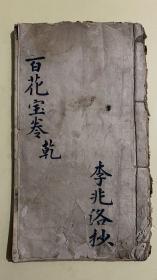 百花宝卷
乾
李兆洛抄